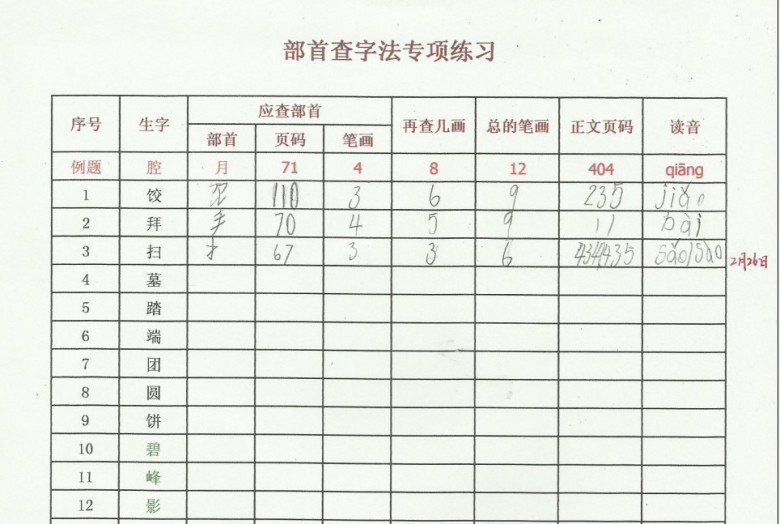 部首查字法专项练习
序号 生字 应查部首 再查几画 总的笔画 正文页码 读音
部首 页码 笔画
例题 腔 月 71 4 8 12 404 qiāng
1 饺 110 3 6 9 235 jiǎo
2 拜 手 70 4 5 9 11 bài
3 扫 扌 67 3 3 6 434/435 sǎo/sào
2月26日
4 墓
5 踏
6 端
7 团
8 圆
9 饼
10 碧
11 峰
12 影